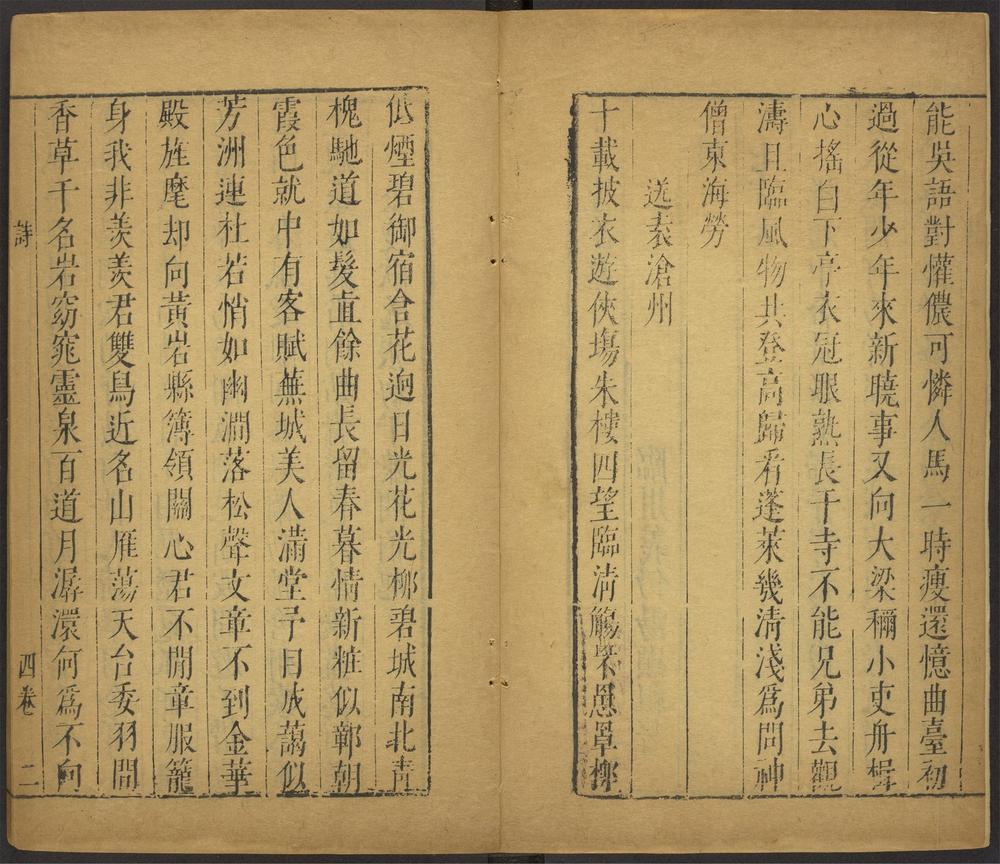 能吳語對懽儂可憐人馬一時瘦還憶曲臺初
過從年少年來新曉事又向大梁稱小吏舟楫
心搖白下亭衣冠眼熟長干寺不能兄弟去觀
濤且臨風物共登高歸看蓬萊幾清淺爲問神
僧東海勞
送袁滄州
十載披衣遊俠場朱樓四望臨清觴罘罳罩栁
低煙碧御宿含花逈日光花光栁碧城南北青
槐馳道如髮直餘曲長留春暮情新粧似鄣朝
霞色就中有客賦蕪城美人滿堂予目成藹似
芳洲連杜若悄如幽澗落松聲文章不到金華
殿旌麾却向黃岩縣簿領關心君不閒章服籠
身我非羨羨君雙鳥近名山雁蕩天台委羽間
香草千名岩窈窕靈泉百道月潺湲何爲不向
詩
四卷
二